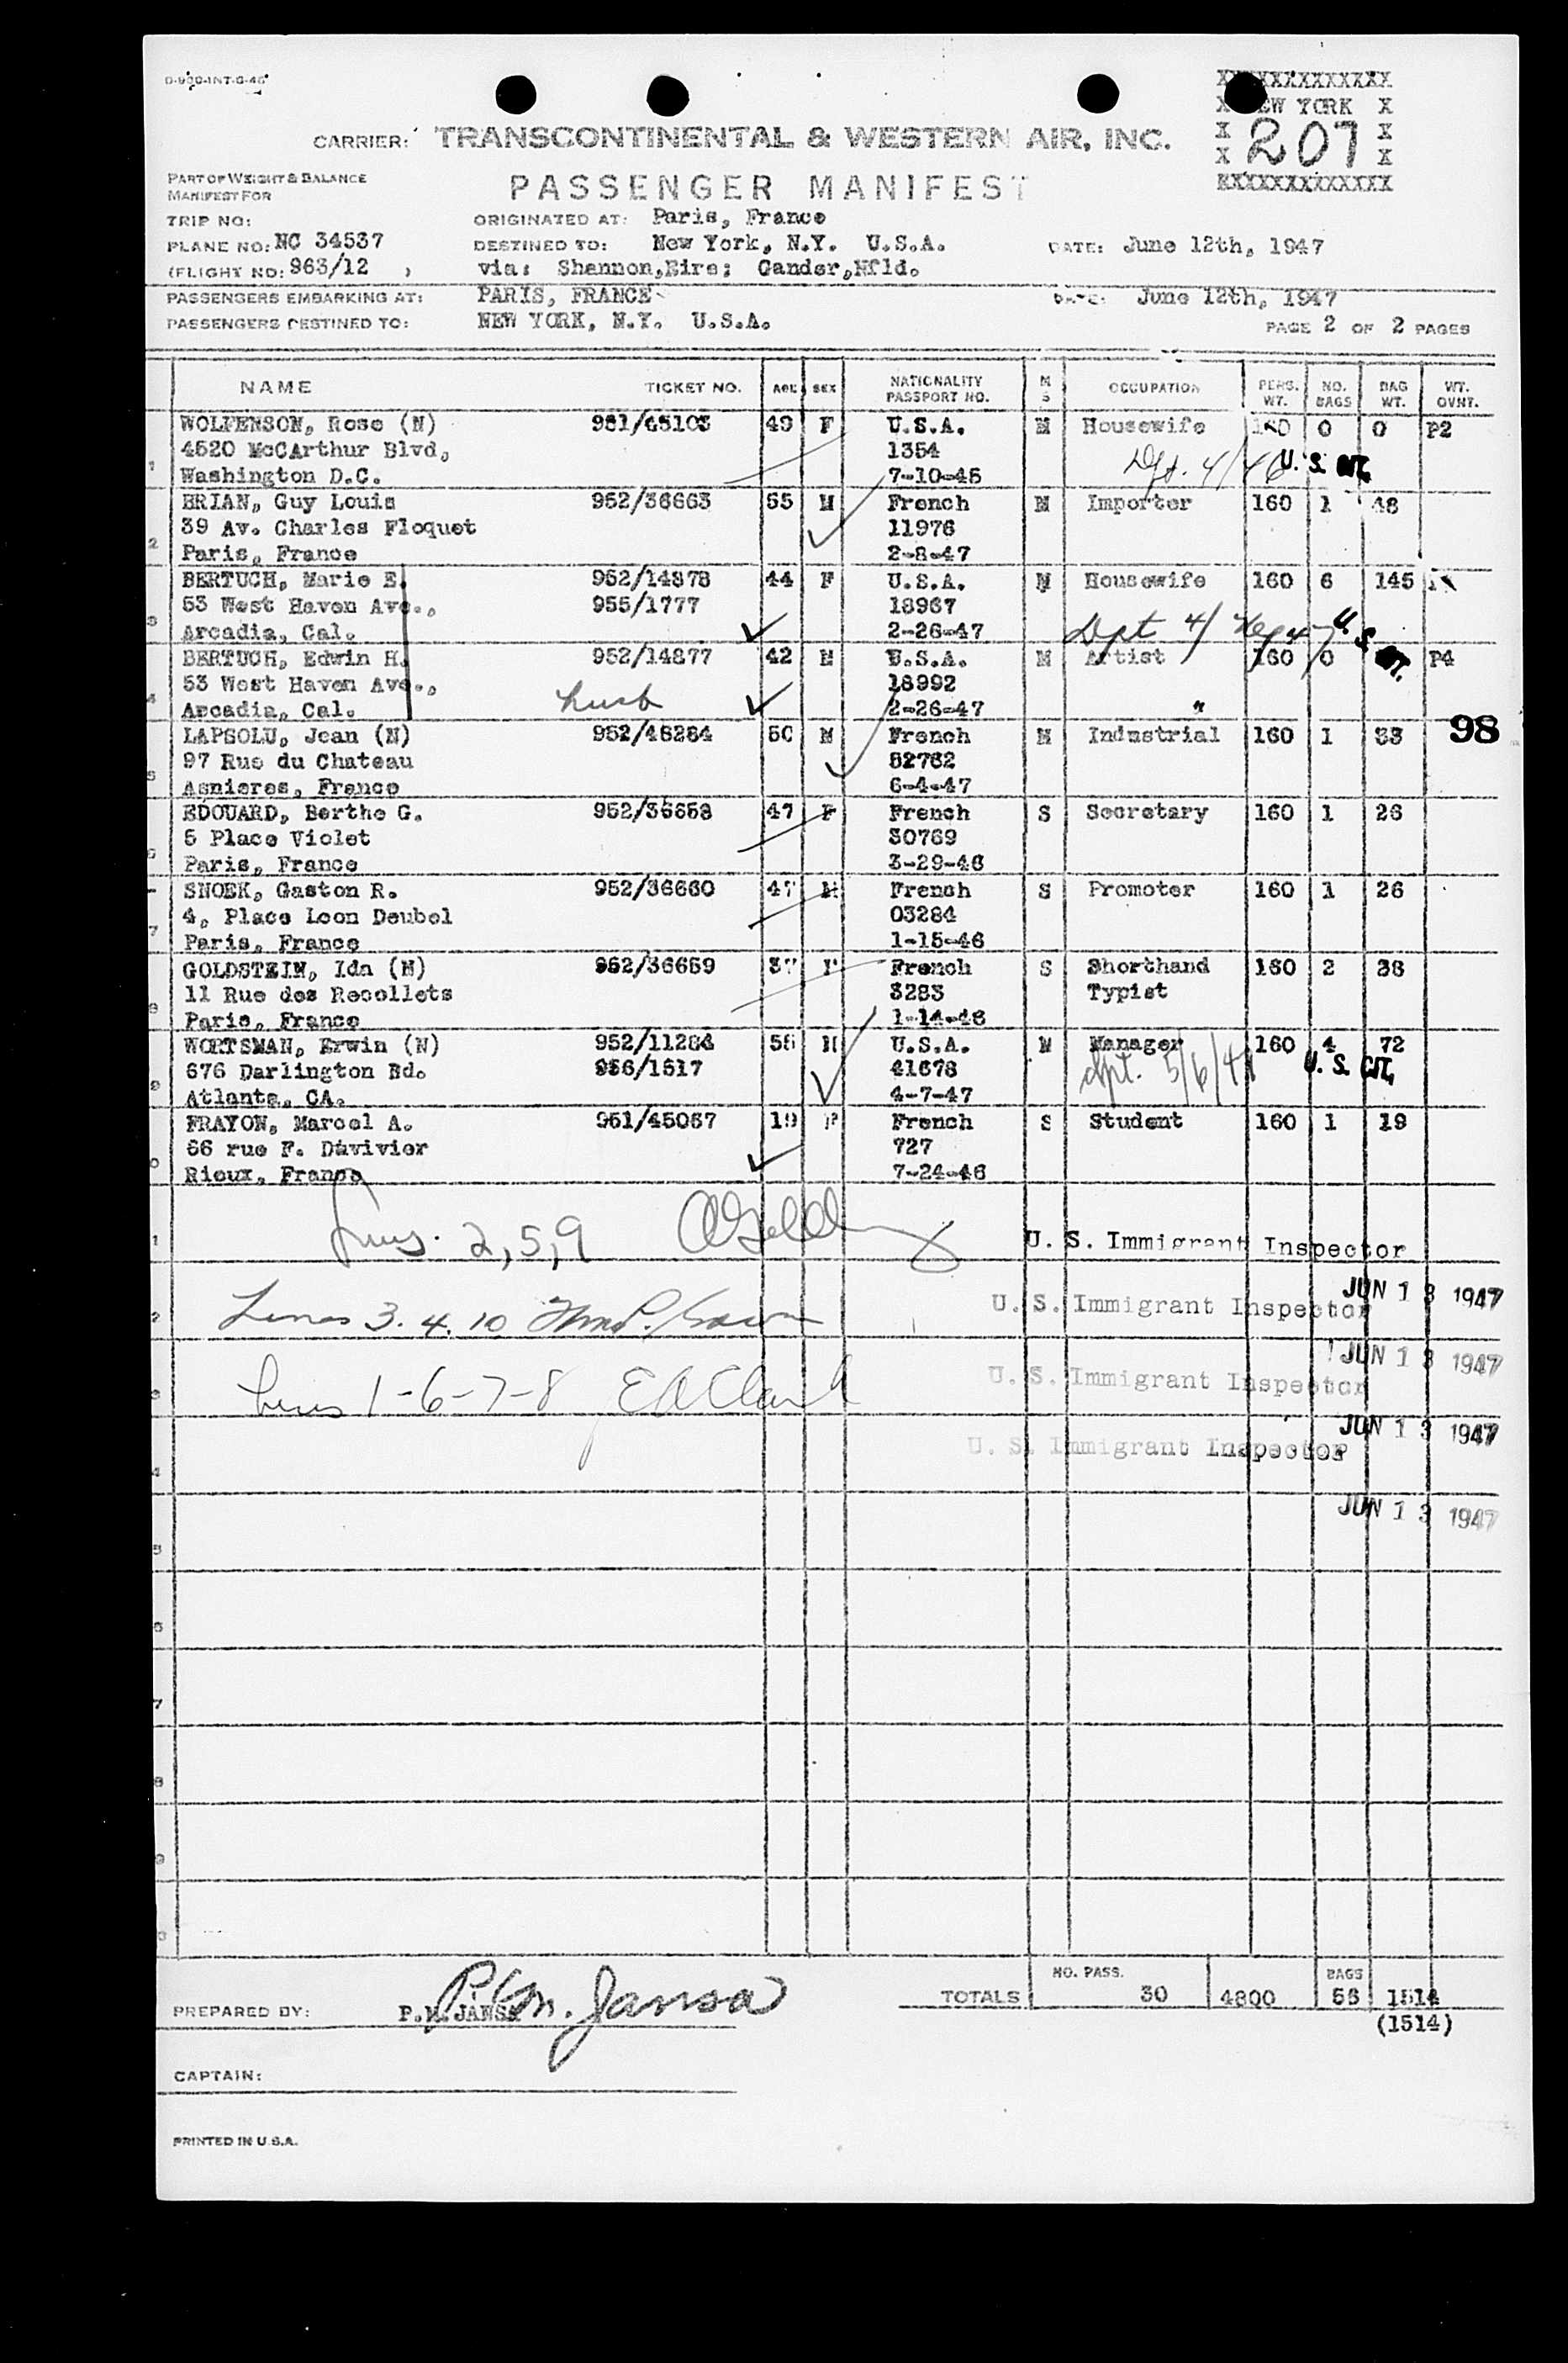 XXXXXXXXXXXXX
NEW YORK X
X 207 X
XXXXXXXXXXXXX
CARRIER: TRANSCONTINENTAL & WESTERN AIR, INC.
PART OF WEIGHT & BALANCE
MANIFEST FOR
PASSENGER MANIFEST
TRIP NO: ORIGINATED AT: Paris, France
PLANE NO: NC 34537 DESTINED TO: New York, N.Y. U.S.A. DATE: June 12th, 1947
(FLIGHT NO: 963/12 ) via: Shannon,Eire; Gander,Nfld.
PASSENGERS EMBARKING AT: PARIS, FRANCE DATE: June 12th, 1947
PASSENGERS DESTINED TO: NEW YORK, N.Y. U.S.A.
PAGE 2 OF 2 PAGES
NAME TICKET NO. AGE SEX NATIONALITY PASSPORT NO. M S OCCUPATION PERS. WT. NO. BAGS BAG WT. WT. OVNT.
WOLFENSON, Rose (N) 951/45103 49 F U.S.A. M Housewife 160 0 0 P2
4520 McCArthur Blvd, 1354
1 Washington D.C. 7-10-45 U. S. CIT.
BRIAN, Guy Louis 952/36663 55 M French M Importer 160 1 48
39 Av. Charles Floquet 11976
2 Paris, France 2-8-47
BERTUCH, Marie E. 952/14878 44 F U.S.A. M Housewife 160 6 145
53 West Haven Ave., 955/1777 18967
3 Arcadia, Cal. 2-26-47 Dpt 4/ U. S. CIT.
BERTUCH, Edwin H. 952/14877 42 M U.S.A. M Artist 160 0 P4
53 West Haven Ave., 18992
4 Arcadia, Cal. husb 2-26-47 "
LAPSOLU, Jean (N) 952/46284 50 M French M Industrial 160 1 33 98
97 Rue du Chateau 52762
5 Asnieres, France 6-4-47
EDOUARD, Berthe G. 952/36658 47 F French S Secretary 160 1 26
5 Place Violet 30769
6 Paris, France 3-29-46
SNOEK, Gaston R. 952/36660 47 M French S Promoter 160 1 26
4, Place Leon Deubel 03284
7 Paris, France 1-15-46
GOLDSTEIN, Ida (N) 952/36659 37 F French S Shorthand 160 2 38
11 Rue des Recollets 3283 Typist
8 Paris, France 1-14-46
WORTSMAN, Erwin (N) 952/11284 56 M U.S.A. M Manager 160 4 72
676 Darlington Rd. 956/1517 41678 dpt. 5/6/47 U. S. CIT.
9 Atlanta, GA. 4-7-47
FRAYON, Marcel A. 951/45067 19 F French S Student 160 1 19
66 rue F. Davivier 727
0 Rieux, France 7-24-46
1 Lines. 2, 5, 9 U. S. Immigrant Inspector
JUN 13 1947
2 Lines 3. 4. 10 U. S. Immigrant Inspector
JUN 13 1947
3 Lines 1-6-7-8 E A Clark U. S. Immigrant Inspector
JUN 13 1947
4 U. S. Immigrant Inspector
JUN 13 1947
5
6
7
8
9
NO. PASS. BAGS
TOTALS 30 4800 56 1514
(1514)
PREPARED BY: P.M.JANSA P.M. Jansa
CAPTAIN:
PRINTED IN U.S.A.